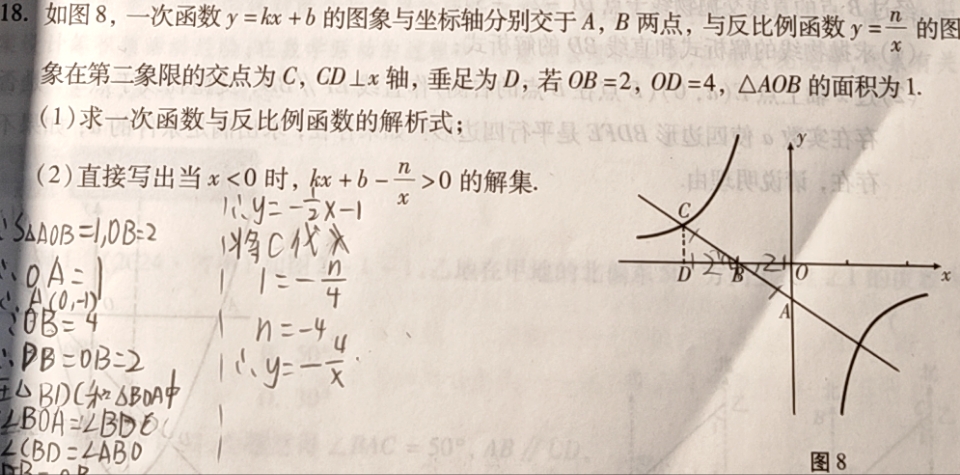 18. 如图8,一次函数 y=kx+b 的图象与坐标轴分别交于 A, B 两点,与反比例函数 y=n/x 的图
象在第二象限的交点为 C, CD⊥x 轴,垂足为 D,若 OB=2, OD=4, △AOB 的面积为1.
(1)求一次函数与反比例函数的解析式;
(2)直接写出当 x<0 时, kx+b-n/x>0 的解集.
∵S△AOB=1,OB=2
∴OA=1
∴A(0,-1)
∵OB=4
∴DB=OB=2
在△BDC和△BOA中
∠BOA=∠BDC
∠CBD=∠ABO
DB=OB
∴y=-1/2x-1
将C代入
1=-n/4
n=-4
∴y=-4/x
y
C
D
2
B
2
O
x
A
图8